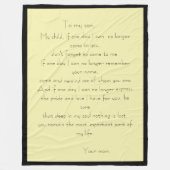 To my son...
My child, if one day I can no longer
come to you,
don't forget to come to me.
If one day I can no longer remember
your name,
come and remind me of whom you are.
And if one day I can no longer express
the pride and love I have for you, be
sure
that deep in my soul nothing is lost,
you remain the most important part of
my life.
Your mom,